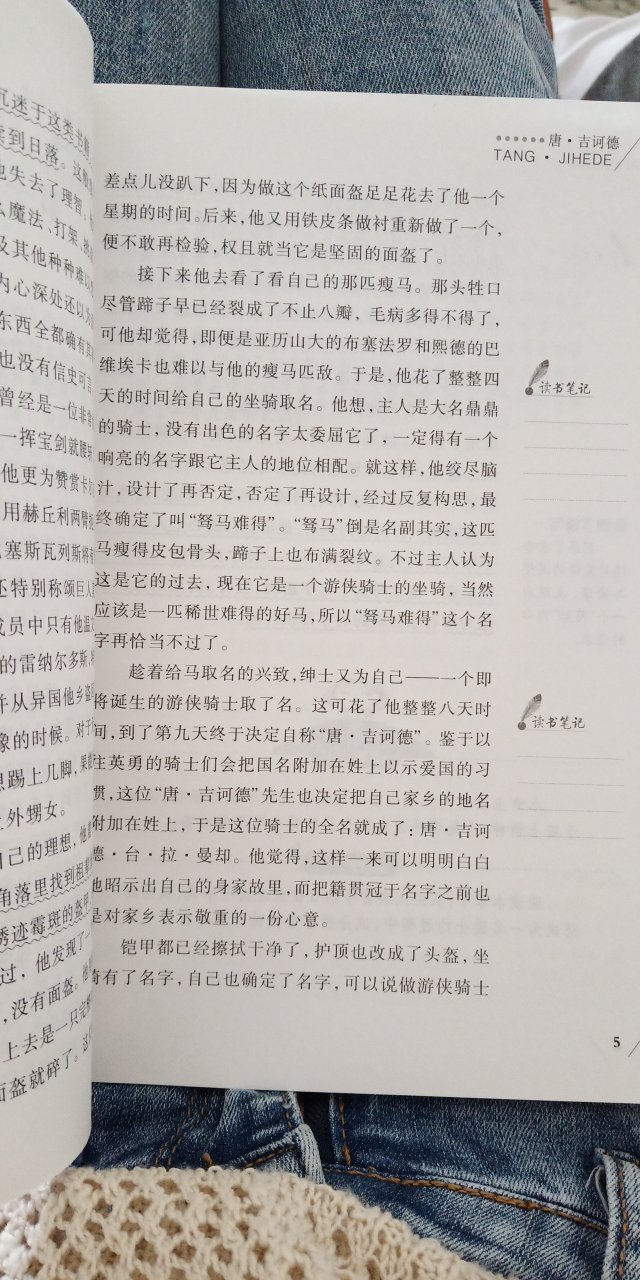 沉迷于这类书籍
读到日落。这般
他失去了理智,
么魔法、打架、挑
及其他种种难以
内心深处还以为
东西全都确有其
也没有信史可言
曾经是一位非常
一挥宝剑就腰斩
他更为赞赏卡
用赫丘利两臂
塞斯瓦列斯将
还特别称颂巨人
成员中只有他温文
的雷纳尔多斯,
并从异国他乡
象的时候。对于
想踢上几脚,果
上外甥女。
自己的理想,他
角落里找到祖
锈迹霉斑的盔甲
过,他发现了一
,没有面盔。他
上去是一只完整
面盔就碎了。这
唐·吉诃德
TANG·JIHEDE
差点儿没趴下,因为做这个纸面盔足足花去了他一个
星期的时间。后来,他又用铁皮条做衬重新做了一个,
便不敢再检验,权且就当它是坚固的面盔了。
接下来他去看了看自己的那匹瘦马。那头牲口
尽管蹄子早已经裂成了不止八瓣,毛病多得不得了,
可他却觉得,即便是亚历山大的布塞法罗和熙德的巴
维埃卡也难以与他的瘦马匹敌。于是,他花了整整四
天的时间给自己的坐骑取名。他想,主人是大名鼎鼎
的骑士,没有出色的名字太委屈它了,一定得有一个
响亮的名字跟它主人的地位相配。就这样,他绞尽脑
汁,设计了再否定,否定了再设计,经过反复构思,最
终确定了叫“驽马难得”。“驽马”倒是名副其实,这匹
马瘦得皮包骨头,蹄子上也布满裂纹。不过主人认为
这是它的过去,现在它是一个游侠骑士的坐骑,当然
应该是一匹稀世难得的好马,所以“驽马难得”这个名
字再恰当不过了。
趁着给马取名的兴致,绅士又为自己——一个即
将诞生的游侠骑士取了名。这可花了他整整八天时
间,到了第九天终于决定自称“唐·吉诃德”。鉴于以
往英勇的骑士们会把国名附加在姓上以示爱国的习
惯,这位“唐·吉诃德”先生也决定把自己家乡的地名
附加在姓上,于是这位骑士的全名就成了:唐·吉诃
德·台·拉·曼却。他觉得,这样一来可以明明白白
地昭示出自己的身家故里,而把籍贯冠于名字之前也
是对家乡表示敬重的一份心意。
铠甲都已经擦拭干净了,护顶也改成了头盔,坐
骑有了名字,自己也确定了名字,可以说做游侠骑士
读书笔记
读书笔记
5